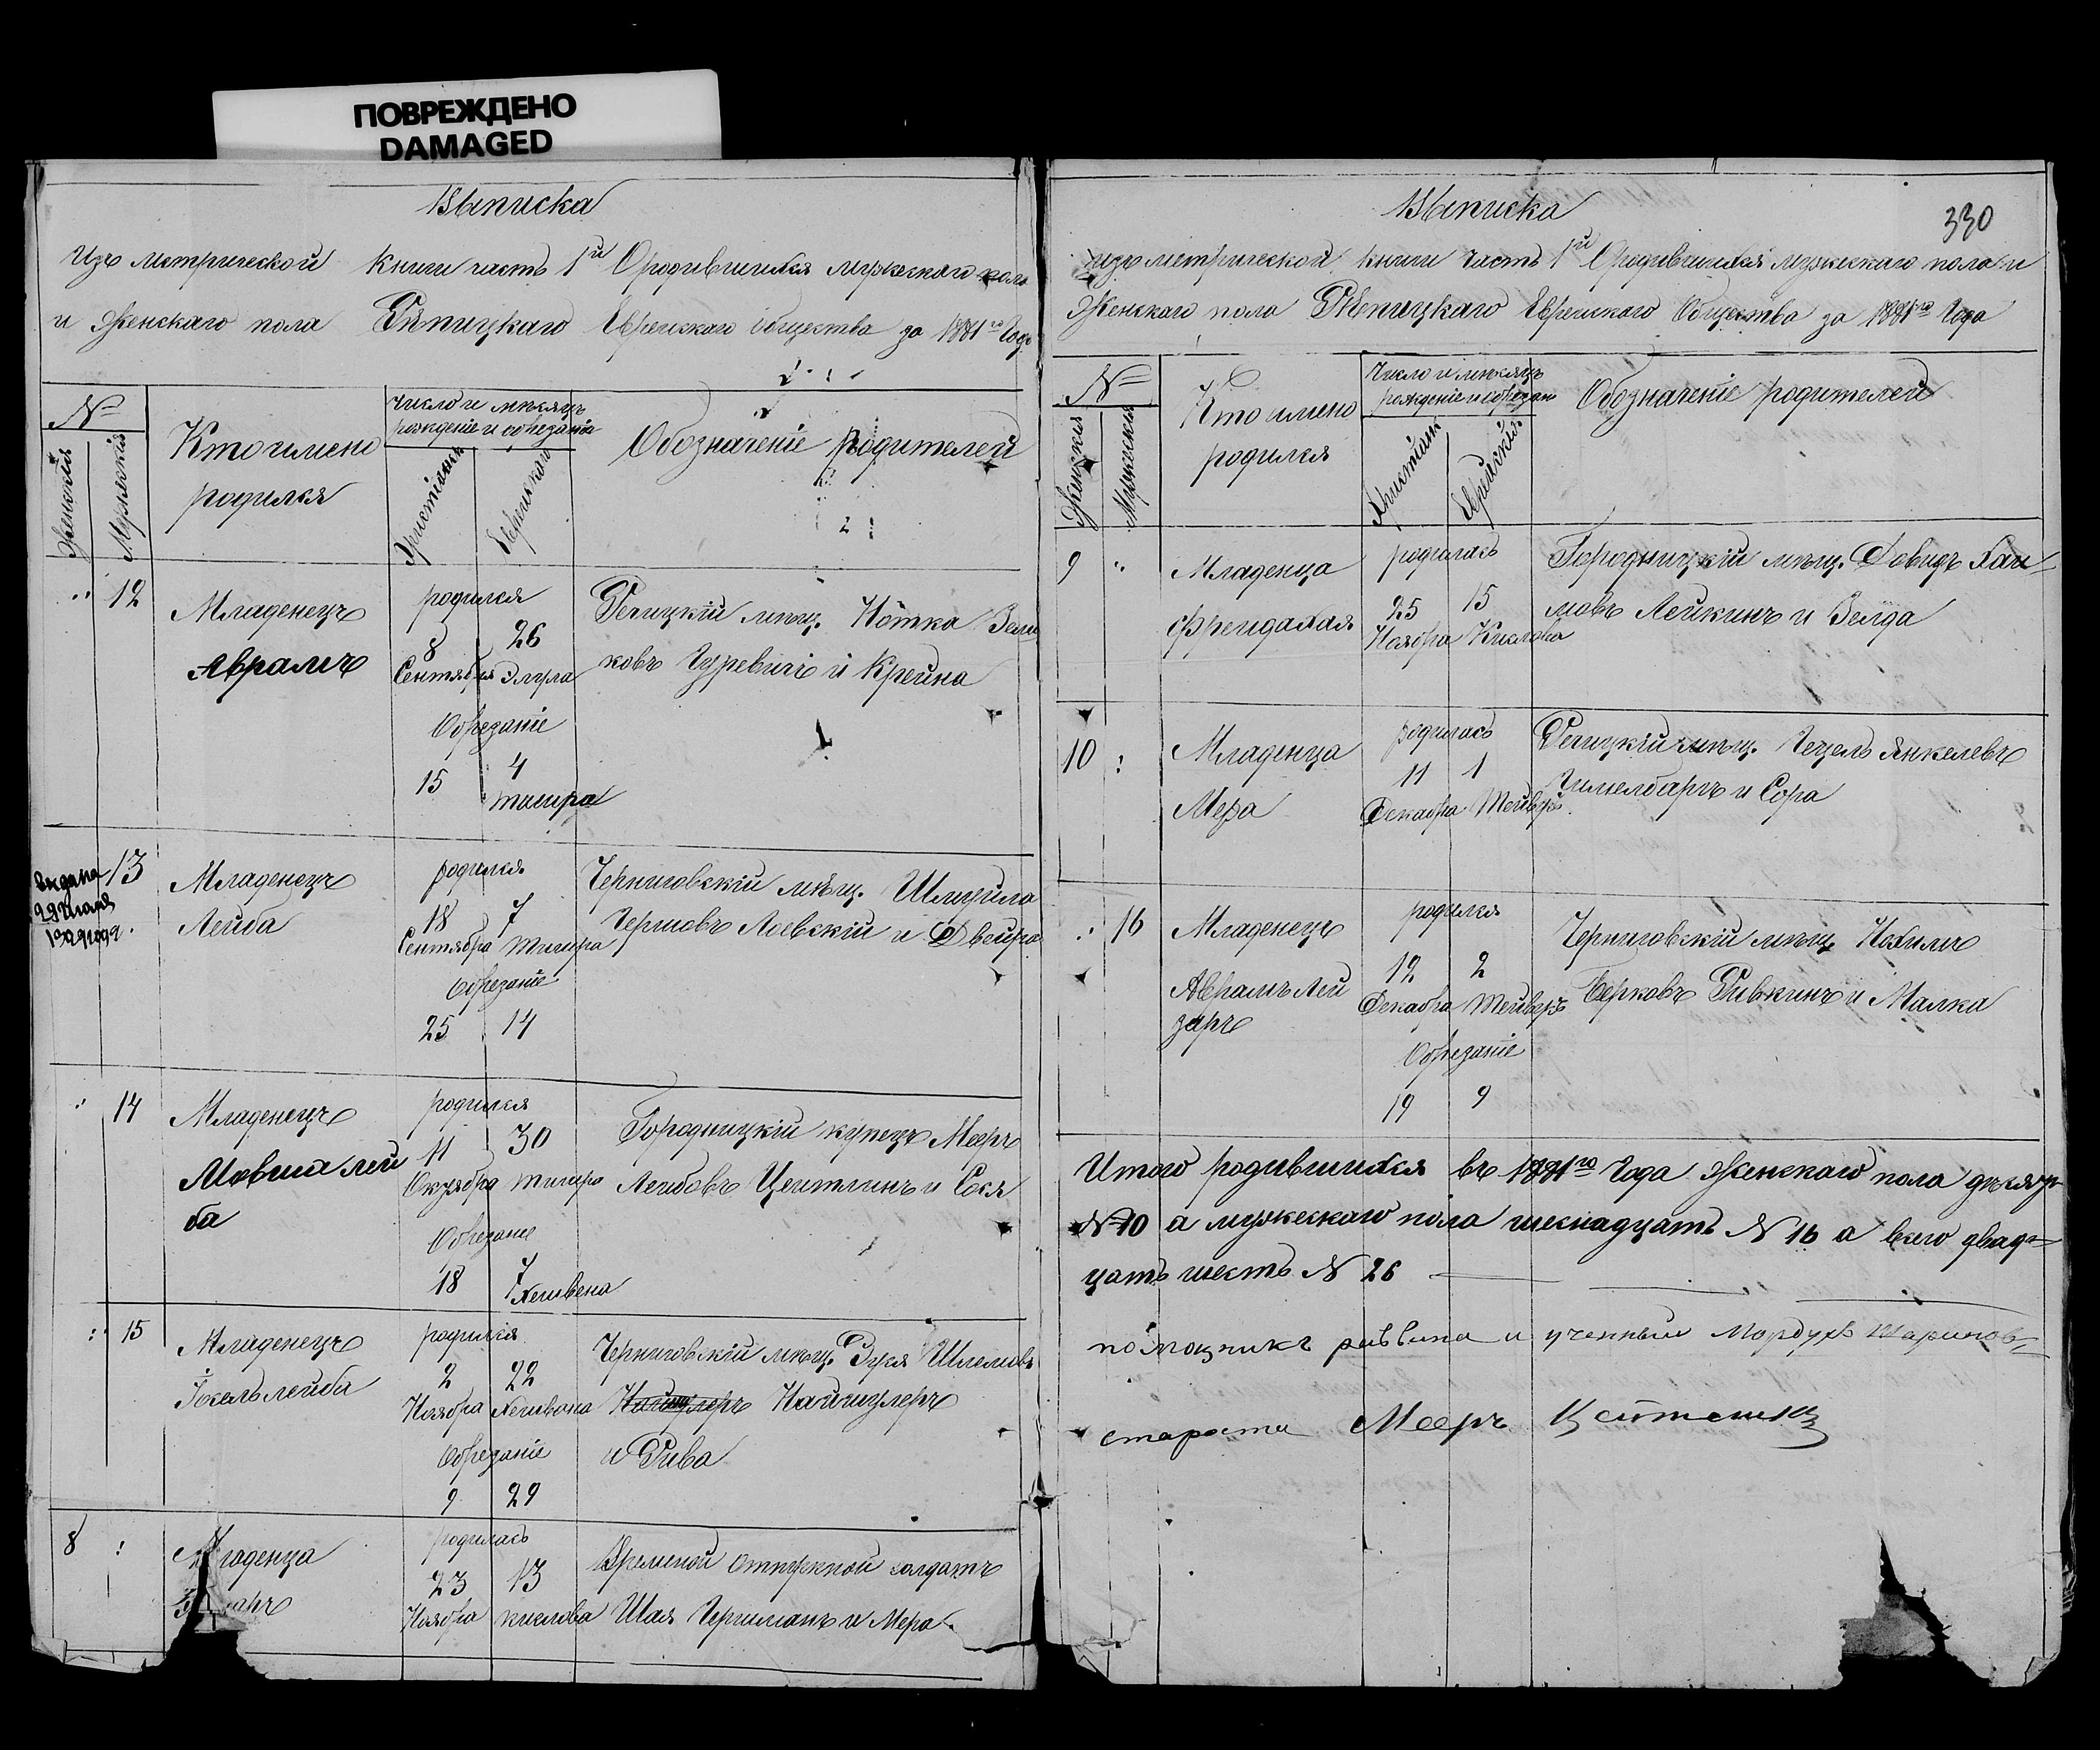 ПОВРЕЖДЕНО
DAMAGED
Выписка
Изъ метрической книги часть 1й О родившихся мужескаго пола
и Женскаго пола Рѣпицкаго Еврейскаго Общества за 1881го Года
№
Женскія
Мужескія
Кто имено
родился
Число и мѣсяцъ
рождение и обрезания
Христіанск
Еврейской
Обозначеніе родителей
12
Младенецъ
Аврамъ
родился
8 26
Сентября Элула
Обрезаніе
15 4
тишра
Речицкій мѣщ. Нотка Зели
ковъ Гуревичь и Крейна
13
Младенецъ
Лейба
родился
18 7
Сентября Тишра
Обрезаніе
25 14
Черниговскій мѣщ. Шмуйла
Лоевскій и Двейра
14
Младенецъ
Мовша лей
ба
родился
11 30
Октября тишра
Обрезание
18 7
Хешвена
Городницкій купецъ Мееръ
Лейбовъ Цеитлинъ и Сося
15
Младенецъ
лейба
родился
2 22
Ноября Хешвона
Обрезаніе
9 29
Черниговскій мѣщ. Шлемовъ
Наймулеръ
и Рива
8
Младенца
родилась
23 13
Ноября кислова
Времяной отпускной солдатъ
Шая и Мера
Выписка
330
изъ метрической книги Часть 1й О родившихся мужескаго пола и
Женскаго пола Рѣпицкаго Еврейскаго Общества за 1881го Года
№
Женския
Мужеския
Кто имено
родился
Число и мѣсяцъ
рождение и обрезан
Христіанск
Еврейския
Обозначеніе родителей
9
Младенца
Фрейдахая
родилась
25 15
Ноября Кислова
Городницкій мѣщ. Довидъ Хаи
мовъ Лейкинъ и Зелда
10
Младенца
Мера
родилась
11 1
Декабра Тейверъ
Речицкій мѣщ. Гецель Янкелевъ
Гимелбаргъ и Сора
16
Младенецъ
Аврамъ Лей
заръ
родился
12 2
Декабра Тейверъ
Обрезаніе
19 9
Черниговскій мѣщ. Нохимъ
Берковъ Ривкинъ и Малка
Итого родившихся въ 1881го Года Женскаго пола дѣсять
№ 10 а мужескаго пола шеснадцать № 16 а всего двад=
цать шесть № 26
помощникъ раввина и ученный Мордухъ
староста Мееръ Цейтлинъ